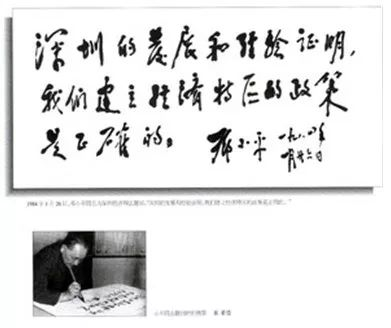 深圳的發展和經驗証明,
我们建立經濟特区的政策
是正確的。 邓小平 一九八四年
一月廿六日
1984 年 1 月 26 日,邓小平同志为深圳经济特区题词:“深圳的发展和经验证明,我们建立经济特区的政策是正确的。”
小平同志题词时的情景